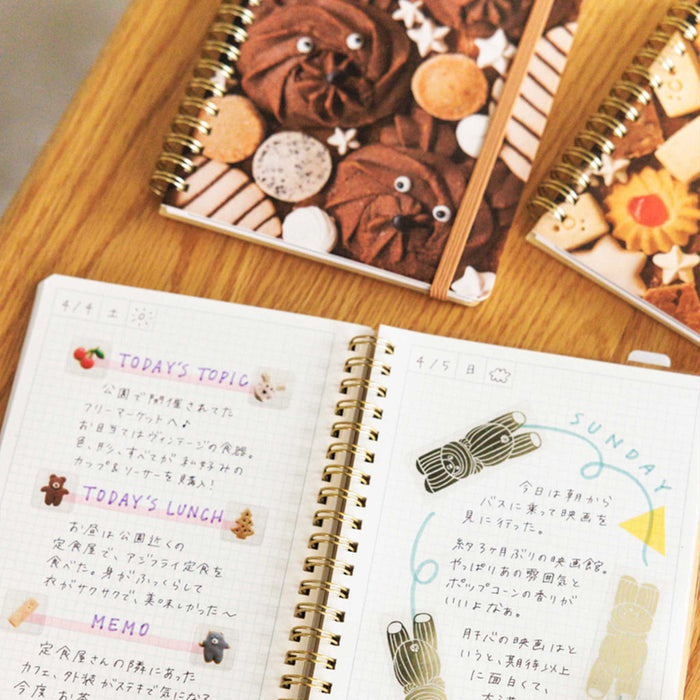 4/4 土
TODAY'S TOPIC
公園で開催されてた
フリーマーケットへ♪
お目当てはヴィンテージの食器。
色、形、すべてが私好みの
カップ&ソーサーを購入!
TODAY'S LUNCH
お昼は公園近くの
定食屋で、アジフライ定食を
食べた。身がふっくらして
衣がサクサクで、美味しかった〜
MEMO
定食屋さんの隣にあった
カフェ、外装がステキで気になる
今度 お茶
4/5 日
SUNDAY
今日は朝から
バスに乗って映画を
見に行った。
約3ヶ月ぶりの映画館。
やっぱりあの雰囲気と
ポップコーンの香りが
いいよなぁ。
肝心の映画はと
いうと、期待以上
に面白くて、